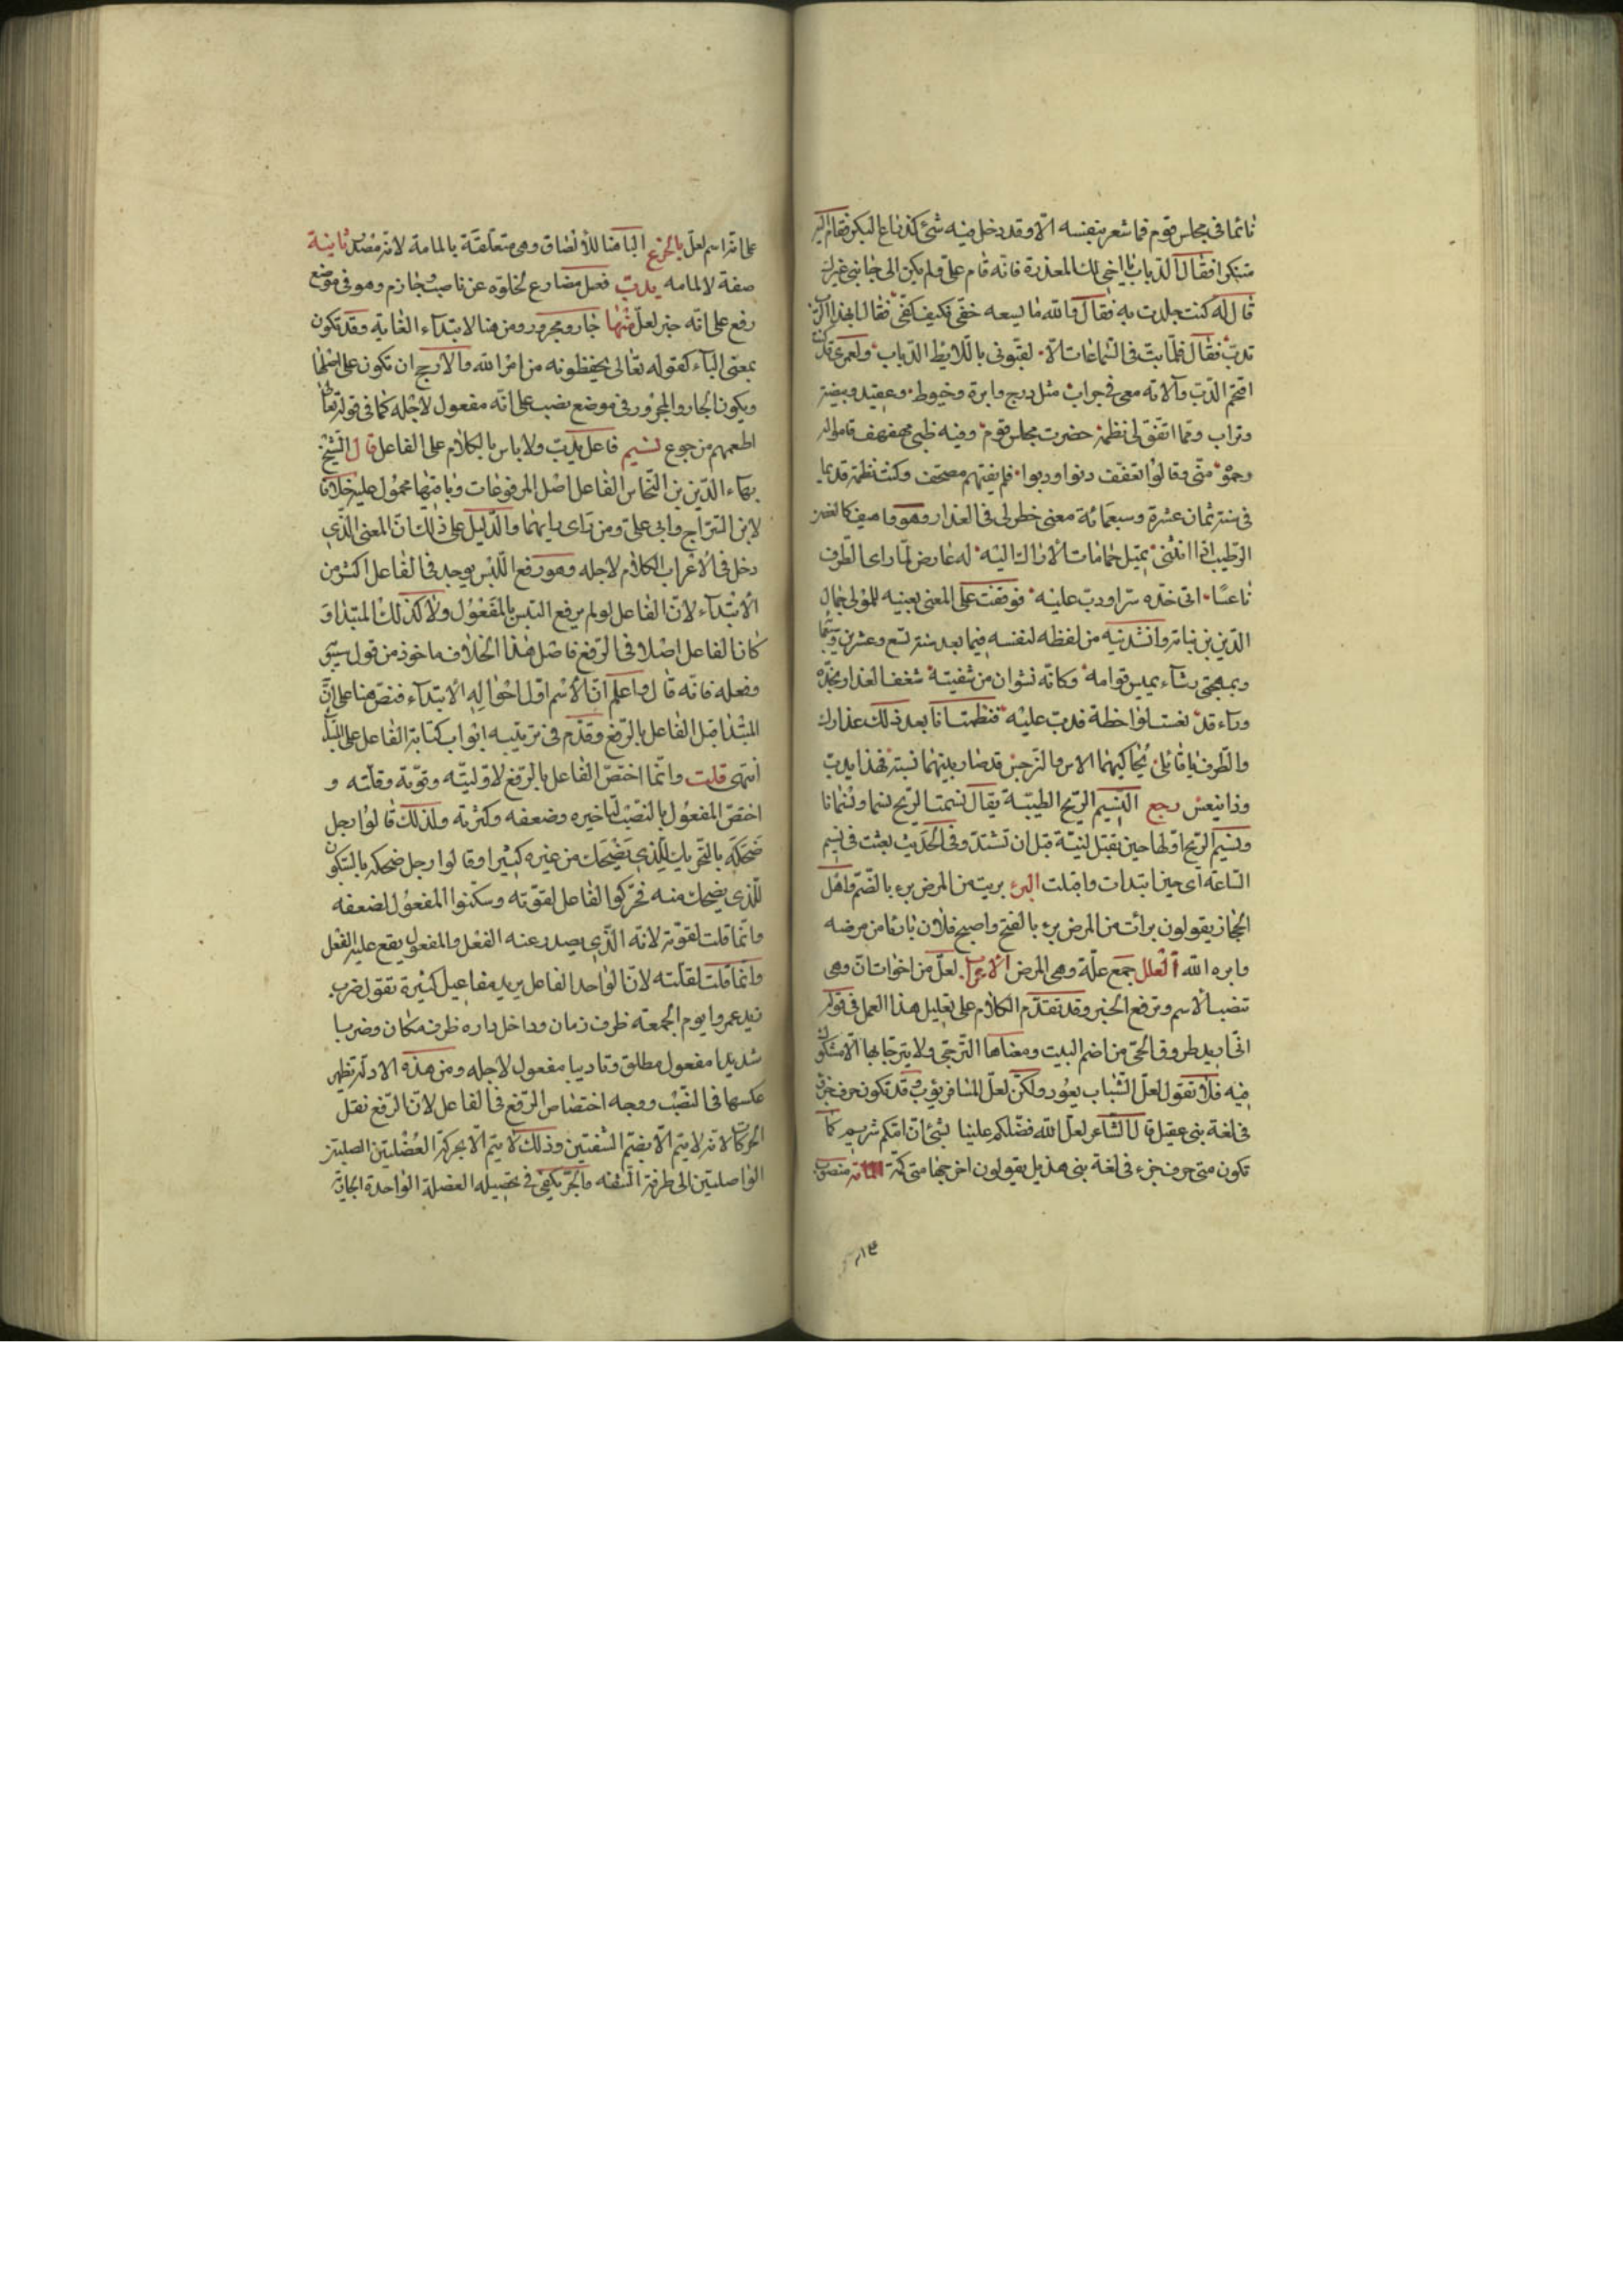 نائما فى مجلس قوم فما شعر بنفسه الا وقد دخل فيه شئ كذراع البكر فقام
متنكرا فقال الدباب يا اخى لك المعذرة فانه قام على ولم يكن الى جانبى غيرك
قال له كنت جلدت به فقال والله ما يسعه خفى فكيف كفى فقال
تدب فقال فلما بت فى السماعات لقبونى باللايط الدباب ولعمرى قد
اقتحم الدب وآلاته معى فى جراب مثل درج وابرة وخيوط وعقيد وبيضة
وتراب ومما اتفق لى نظمه حضرت مجلس قوم وفيه ظبى مهفهف قاموا له
وحموه منى وقالوا تعفف دنوا ودبوا فلم يفتهم مصحف وكنت نظمت قديما
فى سنة ثمان عشرة وسبعمائة معنى خطر لى فى العذار وهو واهيف كالغصن
الرطيب اذا انثنى يميل حمامات الاراك اليه له عارض لما راى الطرف
ناعسا اتى خده سرا ودب عليه فوقفت على المعنى بعينيه للمولى جمال
الدين بن نباتة وانشدنيه من لفظه لنفسه فيما بعد سنة تسع وعشرين
وبمهجتى رشاء يميس قوامه وكانه نشوان من شفيته شغف العذار بخده
ورءاه قد نعست لواحظه فدب عليه فنظمت انا بعد ذلك عذارك
والطرف يا قاتلى يحاكيهما الاس والنرجس قد صار بينهما نسبة فهذا يدب
وذا ينعس رجع النسيم الريح الطيبة يقال نسمت الريح نسما ونسمانا
ونسيم الريح اولها حين تقبل لينة قبل ان تشتد وفى الحديث بعثت فى نسيم
الساعة اى حين ابتدات واقبلت البرء بريت من المرض برء بالضم واهل
الحجاز يقولون برائت من المرض برء بالفتح واصبح فلان بارئا من مرضه
وابره الله العلل جمع علة وهى المرض الاعراب لعل من اخوات ان وهى
تنصب الاسم وترفع الخبر وقد تقدم الكلام على تعليل هذا العمل فى قوله
انى اريد طروق الحى من اضم البيت ومعناها الترجى ولا يترجا بها الا مشكوك
فيه فلا تقول لعل الشباب يعود ولكن لعل المسافر يؤب وقد تكون حرف جر
فى لغة بنى عقيل قال الشاعر لعل الله فضلكم علينا بشئ ان امكم شريم كما
تكون متى حرف جر فى لغة بنى هذيل يقولون اخرجها متى كمه منصوب
على انه اسم لعل بالجزع البا هنا للالصاق وهى متعلقة بالمامة لانه مصدر ثانية
صفة لالمامه يدب فعل مضارع لخلوه عن ناصب وجازم وهو فى موضع
رفع على انه خبر لعل منها جار ومجرور ومن هنا لابتداء الغاية وقد تكون
بمعنى الباء كقوله تعالى يحفظونه من امر الله والارجح ان تكون على اصلها
ويكون الجار والمجرور فى موضع نصب على انه مفعول لاجله كما فى قوله تعالى
اطعمهم من جوع نسيم فاعل يدب ولا باس بالكلام على الفاعل قال الشيخ
بهاء الدين بن النحاس الفاعل اصل المرفوعات وباقيها محمول عليه خلافا
لابن السراج وابى على ومن راى رايهما والدليل على ذلك ان المعنى الذى
دخل فى الاعراب الكلام لاجله وهو رفع اللبس يوجد فى الفاعل اكثر من
الابتداء لان الفاعل لو لم يرفع التبس بالمفعول ولا كذلك المبتدا و
كان الفاعل اصلا فى الرفع فاصل هذا الخلاف ماخوذ من قول سيبويه
وفعله فانه قال واعلم ان الاسم اول احواله الابتداء فنص هنا على ان
المبتدا قبل الفاعل بالرفع وقدم فى ترتيبه ابواب كتابه الفاعل على المبتدا
انتهى قلت وانما اختص الفاعل بالرفع لاوليته وقوته وقلته و
اختص المفعول بالنصب لتاخيره وضعفه وكثرته ولذلك قالوا رجل
ضحكة بالتحريك للذى يضحك من غيره كثيرا وقالوا رجل ضحكة بالسكون
للذى يضحك منه فحركوا الفاعل لقوته وسكنوا المفعول لضعفه
وانما قلت لقوته لانه الذى يصدر عنه الفعل والمفعول يقع عليه الفعل
وانما قلت لقلته لان الواحد الفاعل يريد مفاعيل كثيرة تقول ضرب
زيد عمروا يوم الجمعة ظرف زمان وداخل داره ظرف مكان وضربا
شديدا مفعول مطلق وتاديبا مفعول لاجله ومن هذه الادلة تظهر
عكسها فى النصب ووجه اختصاص الرفع فى الفاعل لان الرفع نقل
الحركات لانه لا يتم الا بضم الشفتين وذلك لا يتم الا بحركة العضلتين الصلبتين
الواصلتين الى طرف الشفة والجر تكفى فى تحصيله العضلة الواحدة الجاذبة